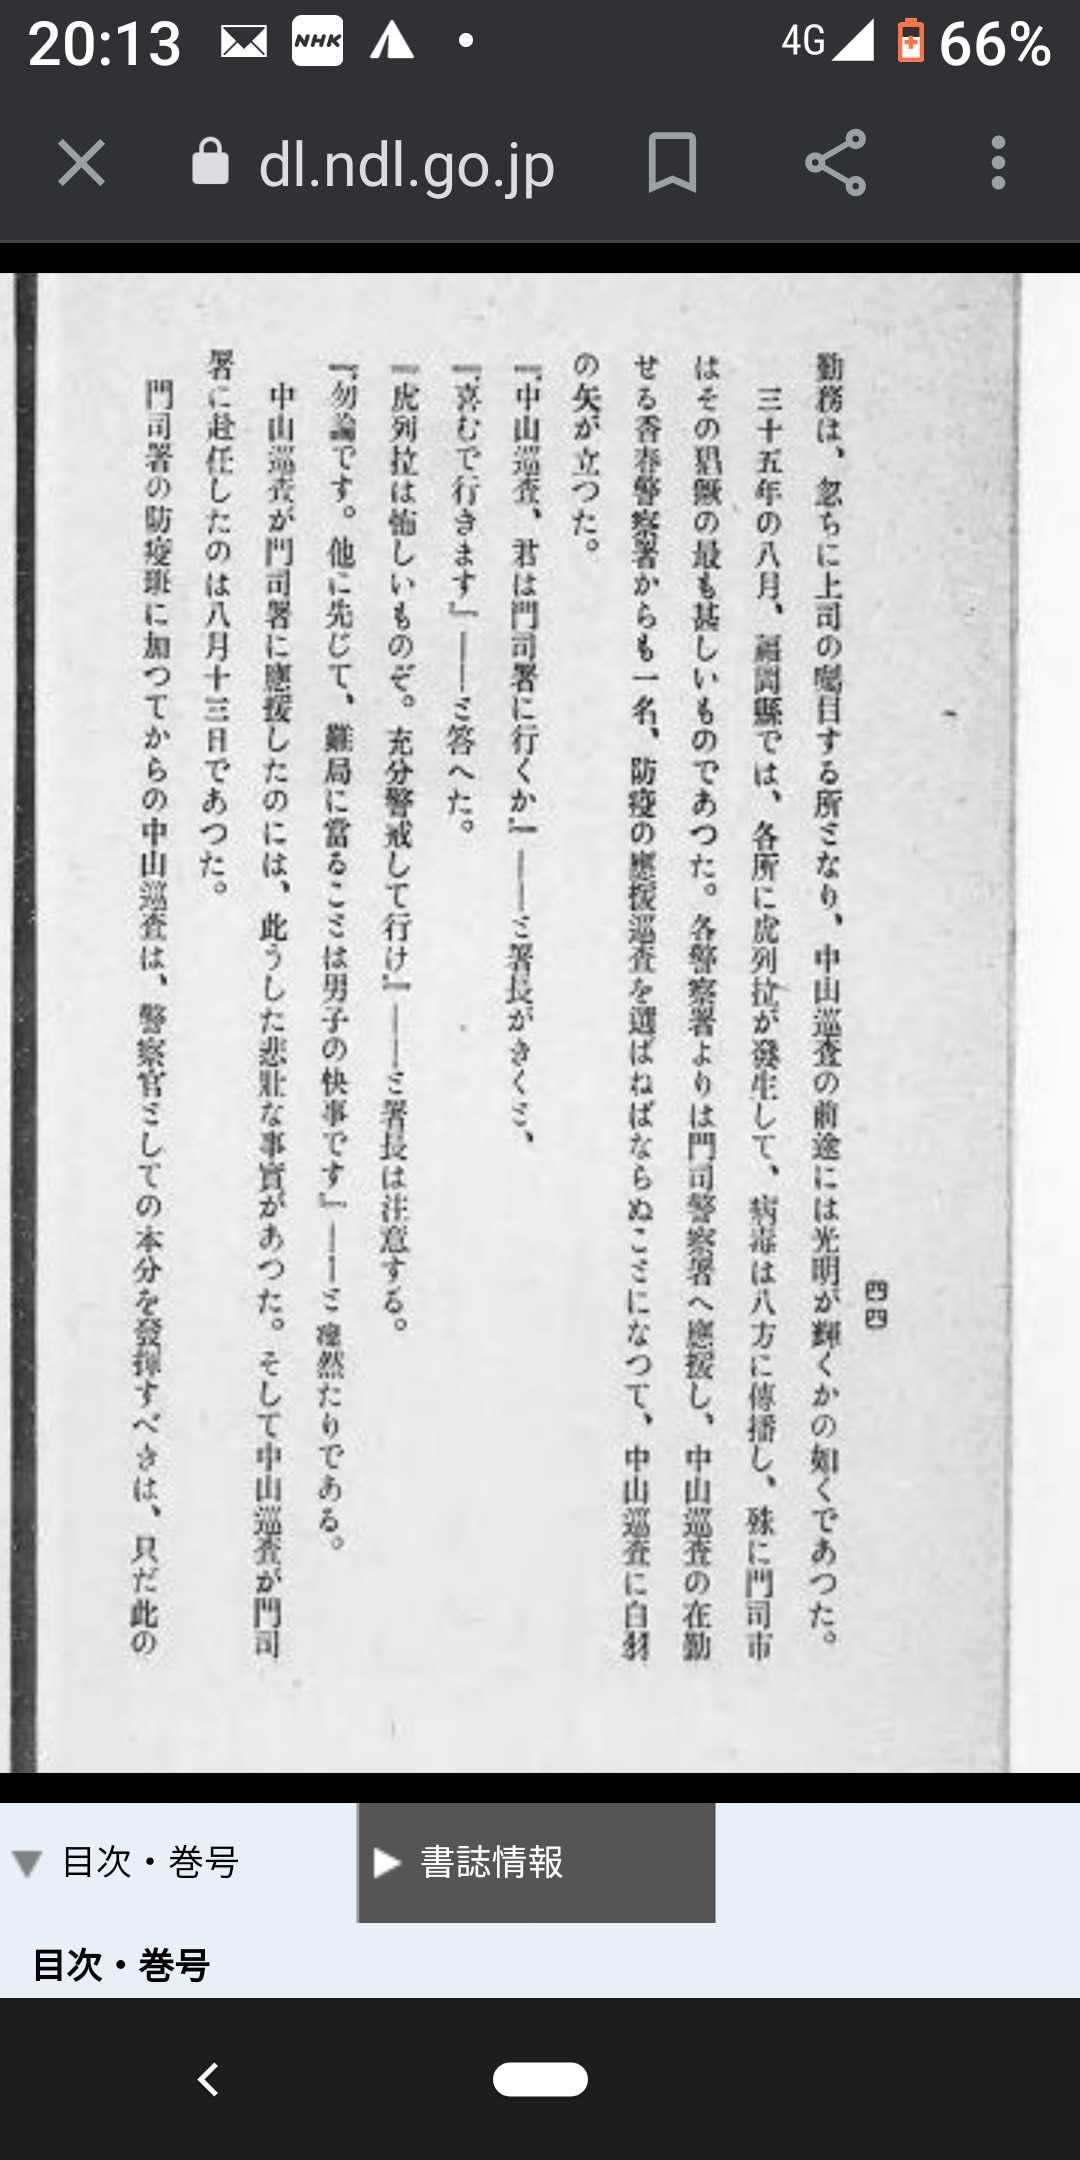 20:13
NHK
4G
66%
dl.ndl.go.jp
四四
勤務は、忽ちに上司の囑目する所ミなり、中山巡査の前途には光明が輝くかの如くであつた。
三十五年の八月、福岡縣では、各所に虎列拉が發生して、病毒は八方に傳播し、殊に門司市
はその猖獗の最も甚しいものであつた。各警察署よりは門司警察署へ應援し、中山巡査の在勤
せる香春警察署からも一名、防疫の應援巡査を選ばねばならぬこミになつて、中山巡査に白羽
の矢が立つた。
『中山巡査、君は門司署に行くか』——ミ署長がきくミ、
『喜むで行きます』——ミ答へた。
『虎列拉は怖しいものぞ。充分警戒して行け』——ミ署長は注意する。
『勿論です。他に先じて、難局に當るこミは男子の快事です』——ミ凜然たりである。
中山巡査が門司署に應援したのには、此うした悲壯な事實があつた。そして中山巡査が門司
署に赴任したのは八月十三日であつた。
門司署の防疫班に加つてからの中山巡査は、警察官ミしての本分を發揮すべきは、只だ此の
▼ 目次・巻号
▶ 書誌情報
目次・巻号